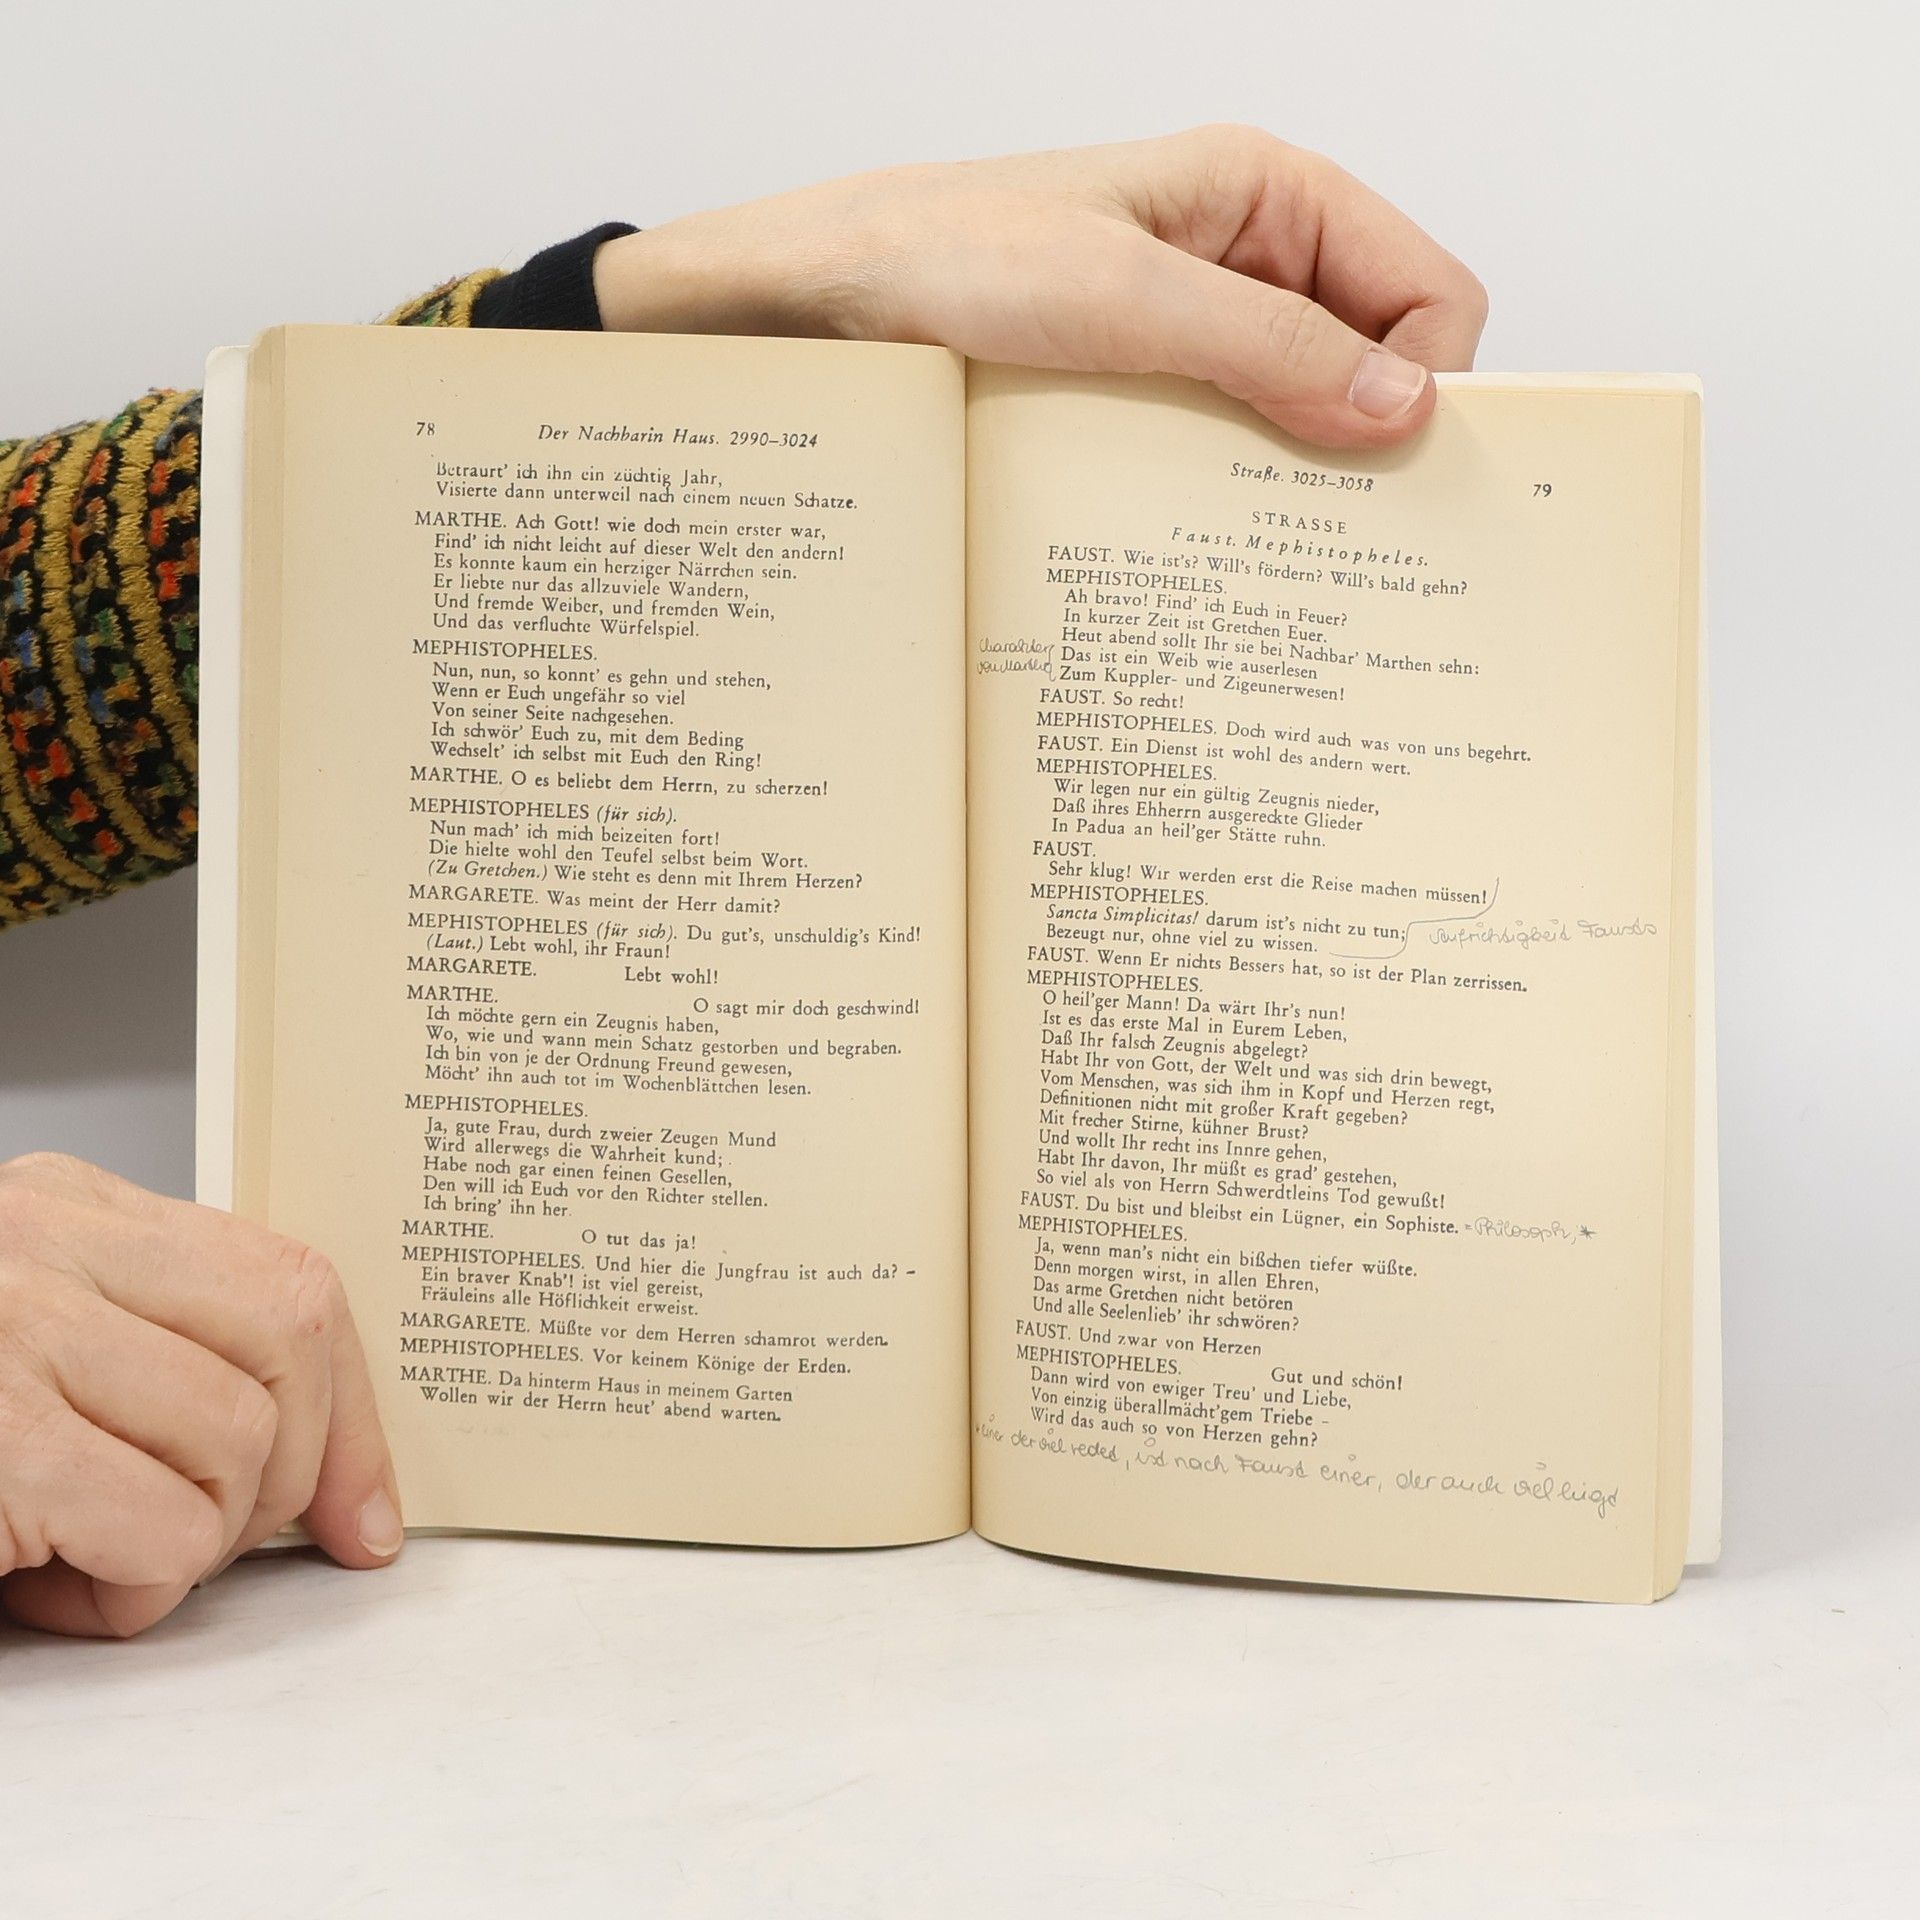 78 Der Nachbarin Haus. 2990–3024
Betraurt' ich ihn ein züchtig Jahr,
Visierte dann unterweil nach einem neuen Schatze.
MARTHE. Ach Gott! wie doch mein erster war,
Find' ich nicht leicht auf dieser Welt den andern!
Es konnte kaum ein herziger Närrchen sein.
Er liebte nur das allzuviele Wandern,
Und fremde Weiber, und fremden Wein,
Und das verfluchte Würfelspiel.
MEPHISTOPHELES.
Nun, nun, so konnt' es gehn und stehen,
Wenn er Euch ungefähr so viel
Von seiner Seite nachgesehen.
Ich schwör' Euch zu, mit dem Beding
Wechselt' ich selbst mit Euch den Ring!
MARTHE. O es beliebt dem Herrn, zu scherzen!
MEPHISTOPHELES (für sich).
Nun mach' ich mich beizeiten fort!
Die hielte wohl den Teufel selbst beim Wort.
(Zu Gretchen.) Wie steht es denn mit Ihrem Herzen?
MARGARETE. Was meint der Herr damit?
MEPHISTOPHELES (für sich). Du gut's, unschuldig's Kind!
(Laut.) Lebt wohl, ihr Fraun!
MARGARETE. Lebt wohl!
MARTHE. O sagt mir doch geschwind!
Ich möchte gern ein Zeugnis haben,
Wo, wie und wann mein Schatz gestorben und begraben.
Ich bin von je der Ordnung Freund gewesen,
Möcht' ihn auch tot im Wochenblättchen lesen.
MEPHISTOPHELES.
Ja, gute Frau, durch zweier Zeugen Mund
Wird allerwegs die Wahrheit kund;
Habe noch gar einen feinen Gesellen,
Den will ich Euch vor den Richter stellen.
Ich bring' ihn her.
MARTHE. O tut das ja!
MEPHISTOPHELES. Und hier die Jungfrau ist auch da? –
Ein braver Knab'! ist viel gereist,
Fräuleins alle Höflichkeit erweist.
MARGARETE. Müßte vor dem Herren schamrot werden.
MEPHISTOPHELES. Vor keinem Könige der Erden.
MARTHE. Da hinterm Haus in meinem Garten
Wollen wir der Herrn heut' abend warten.
Straße. 3025–3058 79
STRASSE
Faust. Mephistopheles.
FAUST. Wie ist's? Will's fördern? Will's bald gehn?
MEPHISTOPHELES.
Ah bravo! Find' ich Euch in Feuer?
In kurzer Zeit ist Gretchen Euer.
Heut abend sollt Ihr sie bei Nachbar' Marthen sehn:
Charakter Das ist ein Weib wie auserlesen
von Marthe Zum Kuppler- und Zigeunerwesen!
FAUST. So recht!
MEPHISTOPHELES. Doch wird auch was von uns begehrt.
FAUST. Ein Dienst ist wohl des andern wert.
MEPHISTOPHELES.
Wir legen nur ein gültig Zeugnis nieder,
Daß ihres Ehherrn ausgereckte Glieder
In Padua an heil'ger Stätte ruhn.
FAUST.
Sehr klug! Wir werden erst die Reise machen müssen!
MEPHISTOPHELES.
Sancta Simplicitas! darum ist's nicht zu tun; Aufrichtigkeit Fausts
Bezeugt nur, ohne viel zu wissen.
FAUST. Wenn Er nichts Bessers hat, so ist der Plan zerrissen.
MEPHISTOPHELES.
O heil'ger Mann! Da wärt Ihr's nun!
Ist es das erste Mal in Eurem Leben,
Daß Ihr falsch Zeugnis abgelegt?
Habt Ihr von Gott, der Welt und was sich drin bewegt,
Vom Menschen, was sich ihm in Kopf und Herzen regt,
Definitionen nicht mit großer Kraft gegeben?
Mit frecher Stirne, kühner Brust?
Und wollt Ihr recht ins Innre gehen,
Habt Ihr davon, Ihr müßt es grad' gestehen,
So viel als von Herrn Schwerdtleins Tod gewußt!
FAUST. Du bist und bleibst ein Lügner, ein Sophiste. = Philosoph, *
MEPHISTOPHELES.
Ja, wenn man's nicht ein bißchen tiefer wüßte.
Denn morgen wirst, in allen Ehren,
Das arme Gretchen nicht betören
Und alle Seelenlieb' ihr schwören?
FAUST. Und zwar von Herzen
MEPHISTOPHELES. Gut und schön!
Dann wird von ewiger Treu' und Liebe,
Von einzig überallmächt'gem Triebe –
Wird das auch so von Herzen gehn?
* einer der viel redet, ist nach Faust einer, der auch viel lügt